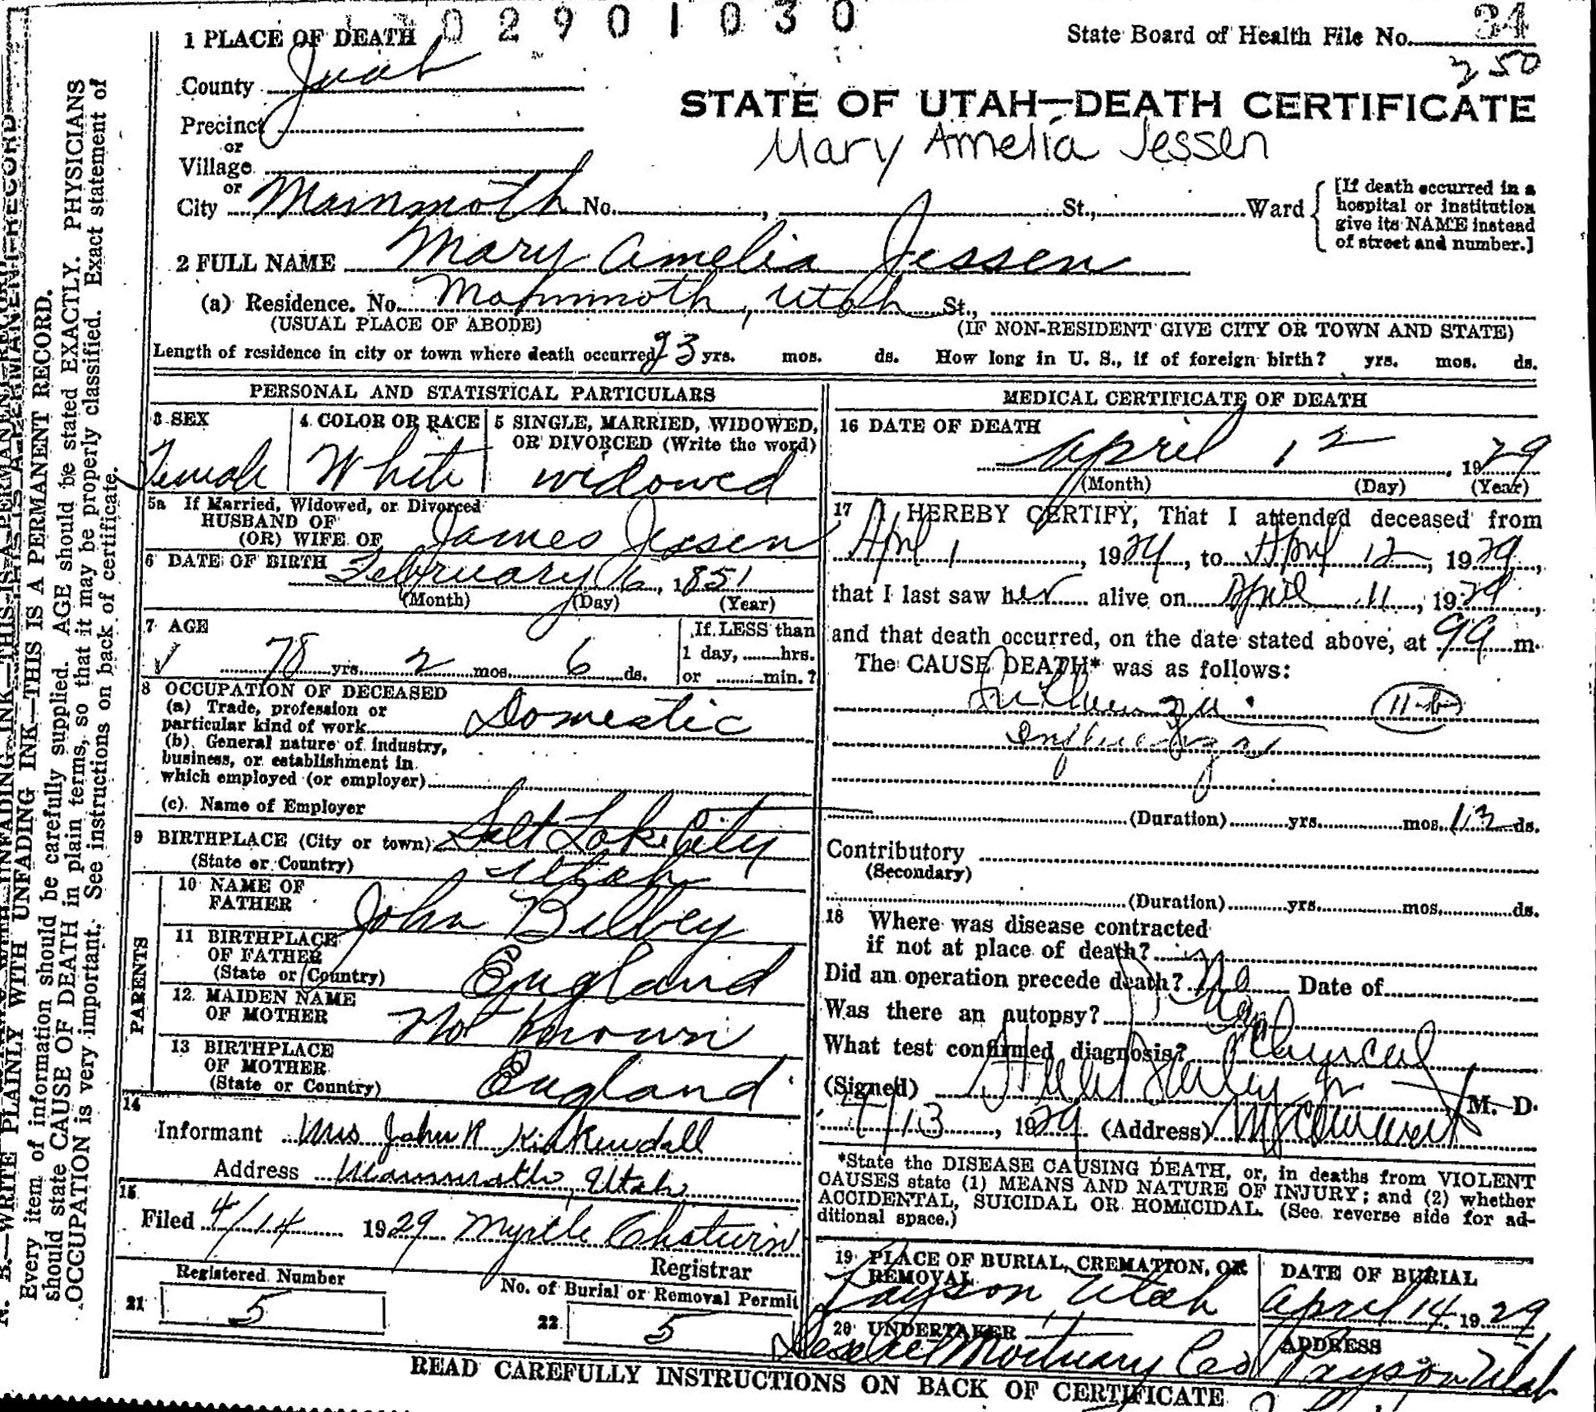 02901030
1 PLACE OF DEATH
State Board of Health File No. 34
250
County Juab
STATE OF UTAH—DEATH CERTIFICATE
Precinct
or
Mary Amelia Jessen
Village
or
City Mammoth No. , St., Ward
[If death occurred in a
hospital or institution
give its NAME instead
of street and number.]
2 FULL NAME Mary Amelia Jessen
(a) Residence. No. Mammoth, Utah St.,
(USUAL PLACE OF ABODE) (IF NON-RESIDENT GIVE CITY OR TOWN AND STATE)
Length of residence in city or town where death occurred yrs. mos. ds. How long in U. S., if of foreign birth? yrs. mos. ds.
PERSONAL AND STATISTICAL PARTICULARS
3 SEX
Female
4 COLOR OR RACE
White
5 SINGLE, MARRIED, WIDOWED,
OR DIVORCED (Write the word)
widowed
5a If Married, Widowed, or Divorced
HUSBAND OF
(OR) WIFE OF James Jessen
6 DATE OF BIRTH February 6, 1851
(Month) (Day) (Year)
7 AGE
78 yrs. 2 mos. 6 ds.
If LESS than
1 day, hrs.
or min.?
8 OCCUPATION OF DECEASED
(a) Trade, profession or
particular kind of work Domestic
(b) General nature of industry,
business, or establishment in
which employed (or employer)
(c) Name of Employer
9 BIRTHPLACE (City or town) Salt Lake City
(State or Country) Utah
PARENTS
10 NAME OF
FATHER John Bilbey
11 BIRTHPLACE
OF FATHER
(State or Country) England
12 MAIDEN NAME
OF MOTHER Not known
13 BIRTHPLACE
OF MOTHER
(State or Country) England
14
Informant Mrs John R Kirkendall
Address Mammoth, Utah
15
Filed 4/14 1929 Myrtle Chatwin
Registrar
Registered Number
21 5
No. of Burial or Removal Permit
22 5
MEDICAL CERTIFICATE OF DEATH
16 DATE OF DEATH
April 12, 1929
(Month) (Day) (Year)
17 I HEREBY CERTIFY, That I attended deceased from
April 1, 1929, to April 12, 1929,
that I last saw her alive on April 11, 1929,
and that death occurred, on the date stated above, at m.
The CAUSE DEATH* was as follows:
Influenza 11-b
Influenza
(Duration) yrs. mos. 13 ds.
Contributory
(Secondary)
(Duration) yrs. mos. ds.
18 Where was disease contracted
if not at place of death?
Did an operation precede death? No Date of
Was there an autopsy? No
What test confirmed diagnosis? Physical
(Signed) M. D.
4/13, 1929 (Address)
*State the DISEASE CAUSING DEATH, or, in deaths from VIOLENT
CAUSES state (1) MEANS AND NATURE OF INJURY; and (2) whether
ACCIDENTAL, SUICIDAL OR HOMICIDAL. (See reverse side for ad-
ditional space.)
19 PLACE OF BURIAL, CREMATION, OR
REMOVAL
Payson, Utah
DATE OF BURIAL
April 14, 1929
20 UNDERTAKER
Mortuary Co
ADDRESS
Payson Utah
READ CAREFULLY INSTRUCTIONS ON BACK OF CERTIFICATE
N. B.—WRITE PLAINLY WITH UNFADING INK—THIS IS A PERMANENT RECORD.
Every item of information should be carefully supplied. AGE should be stated EXACTLY. PHYSICIANS
should state CAUSE OF DEATH in plain terms, so that it may be properly classified. Exact statement of
OCCUPATION is very important. See instructions on back of certificate.